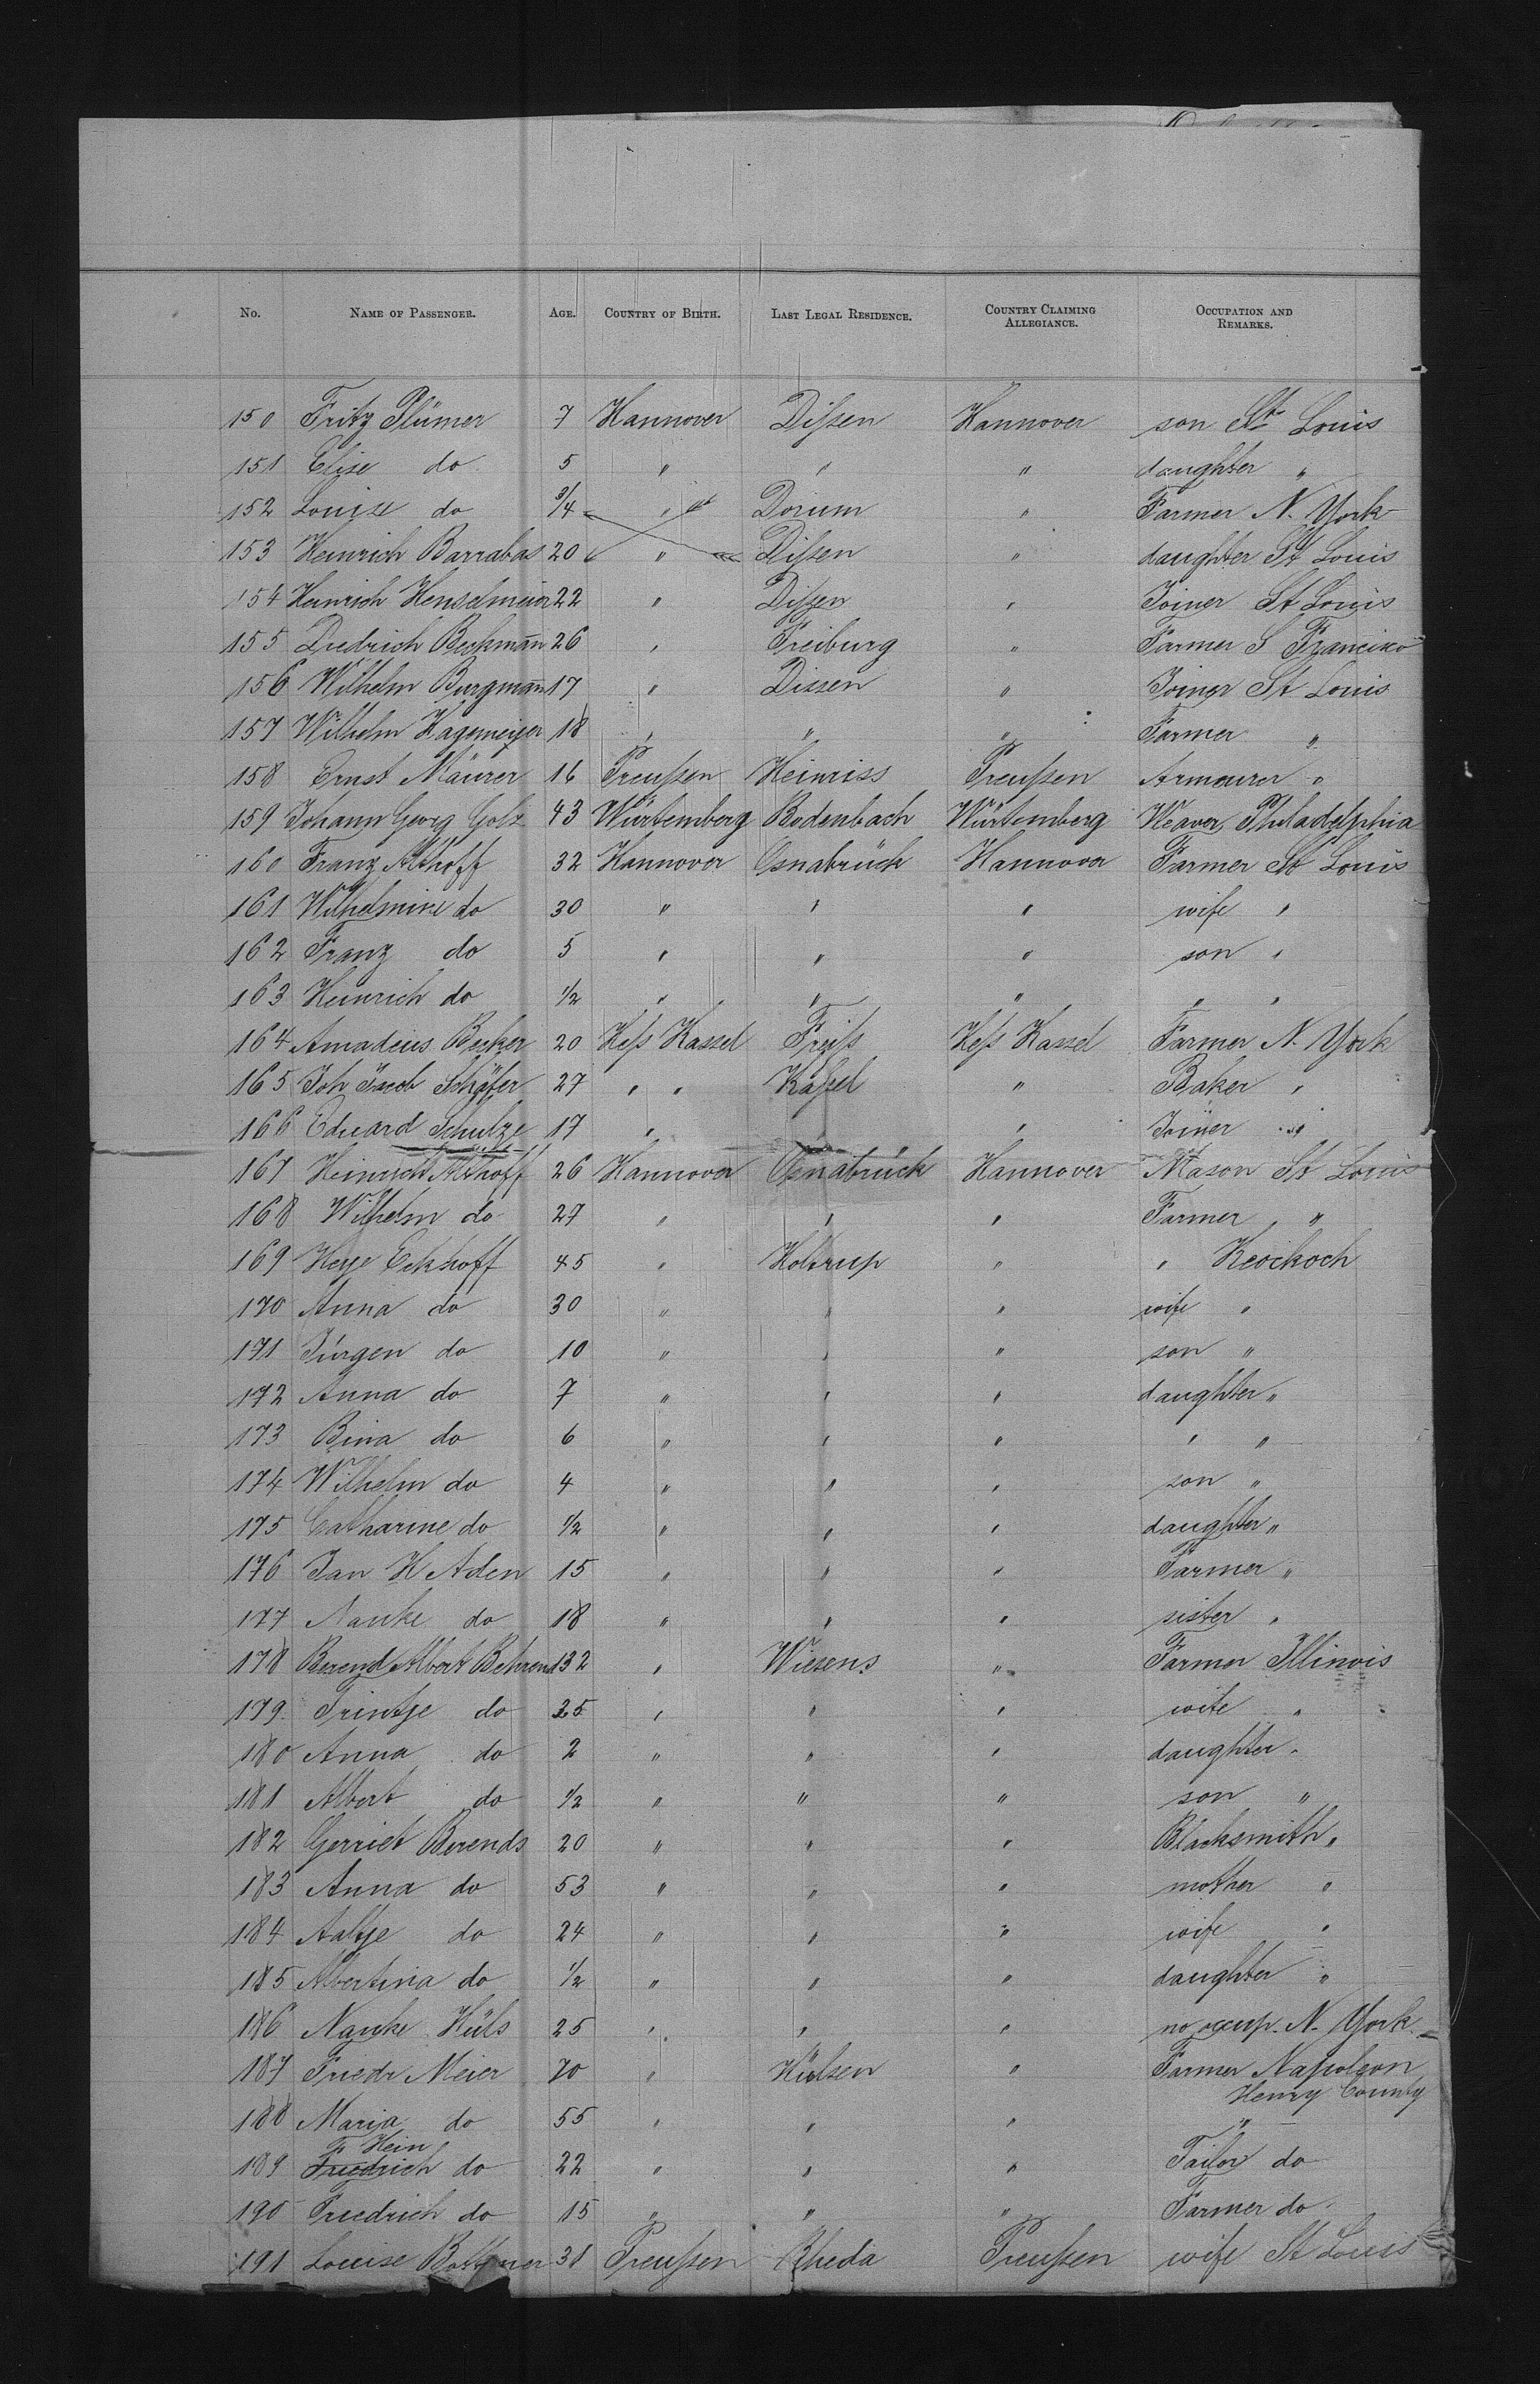 No. Name of Passenger. Age. Country of Birth. Last Legal Residence. Country Claiming Allegiance. Occupation and Remarks.
150 Fritz Plümer 7 Hannover Dißen Hannover son St Louis
151 Elise do 5 " " " daughter "
152 Louise do 3/4 " Dorum " Farmer N. York
153 Heinrich Barrabas 20 " Dißen " daughter St Louis
154 Heinrich Henselmeier 22 " Dißen " Joiner St Louis
155 Diedrich Beckmann 26 " Freiburg " Farmer S Francisco
156 Wilhelm Burgmann 17 " Dissen " Joiner St Louis
157 Wilhelm Hagemeijer 18 " " " Farmer "
158 Ernst Maürer 16 Preußen Heinriss Preußen Armourer "
159 Johann Georg Golz 43 Würtemberg Bodenbach Würtemberg Weaver Philadelphia
160 Franz Althoff 32 Hannover Osnabrück Hannover Farmer St Louis
161 Wilhelmine do 30 " " " wife "
162 Franz do 5 " " " son "
163 Heinrich do 1/2 " " " " "
164 Amadeus Becker 20 Heß Kassel Heß Kassel Farmer N. York
165 Joh Jacob Schäfer 27 " " Kaßel " Baker "
166 Eduard Schulze 17 " " " Joiner "
167 Heinrich Althoff 26 Hannover Osnabrück Hannover Mason St Louis
168 Wilhelm do 27 " " " Farmer "
169 Heye Eckhoff 45 " Holtrup " " Keockoch
170 Anna do 30 " " " wife "
171 Jürgen do 10 " " " son "
172 Anna do 7 " " " daughter "
173 Bina do 6 " " " " "
174 Wilhelm do 4 " " " son "
175 Catharine do 1/2 " " " daughter "
176 Jan H Aden 15 " " " Farmer "
177 Nauke do 18 " " " sister "
178 Berend Albert Behrend 32 " Wiesens " Farmer Illinois
179 Trintje do 25 " " " wife "
180 Anna do 2 " " " daughter "
181 Albert do 1/2 " " " son "
182 Gerriet Berends 20 " " " Blacksmith "
183 Anna do 53 " " " mother "
184 Aaltje do 24 " " " wife "
185 Albertina do 1/2 " " " daughter "
186 Nauke Hüls 25 " " " no occup. N. York
187 Friedr Meier 70 " Hülsen " Farmer Napoleon
Henry County
188 Maria do 55 " " " "
F Hein
189 Friedrich do 22 " " " Tailor do
190 Friedrich do 15 " " " Farmer do
191 Louise 31 Preußen Rheda Preußen wife St Louis